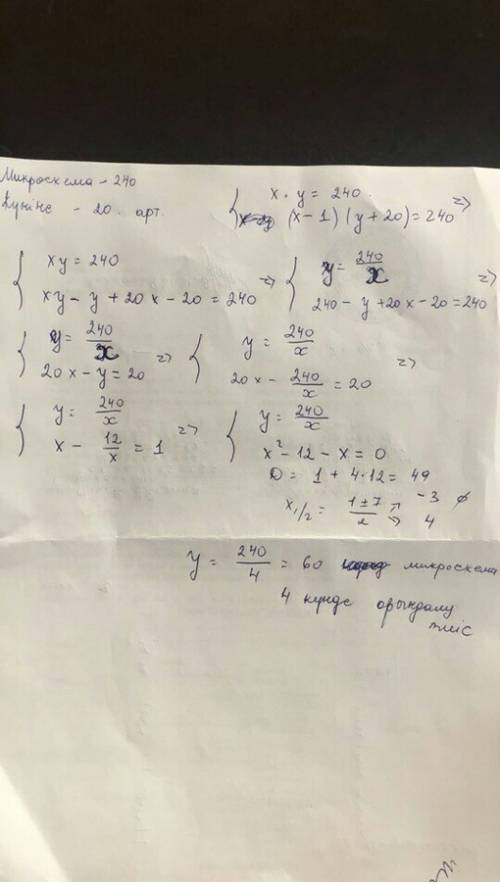 Микросхема - 240
Күніне - 20. арт.
{ x · y = 240
(x - 1)(y + 20) = 240 =>
{ xy = 240
xy - y + 20x - 20 = 240 =>
{ y = 240/x
240 - y + 20x - 20 = 240 =>
{ y = 240/x
20x - y = 20 =>
{ y = 240/x
20x - 240/x = 20 =>
{ y = 240/x
x - 12/x = 1 =>
{ y = 240/x
x² - 12 - x = 0
D = 1 + 4·12 = 49
x1/2 = (1 ± 7)/2 ↗ -3 ∅
↘ 4
y = 240/4 = 60 микросхема
4 күнде орындалу
тиіс